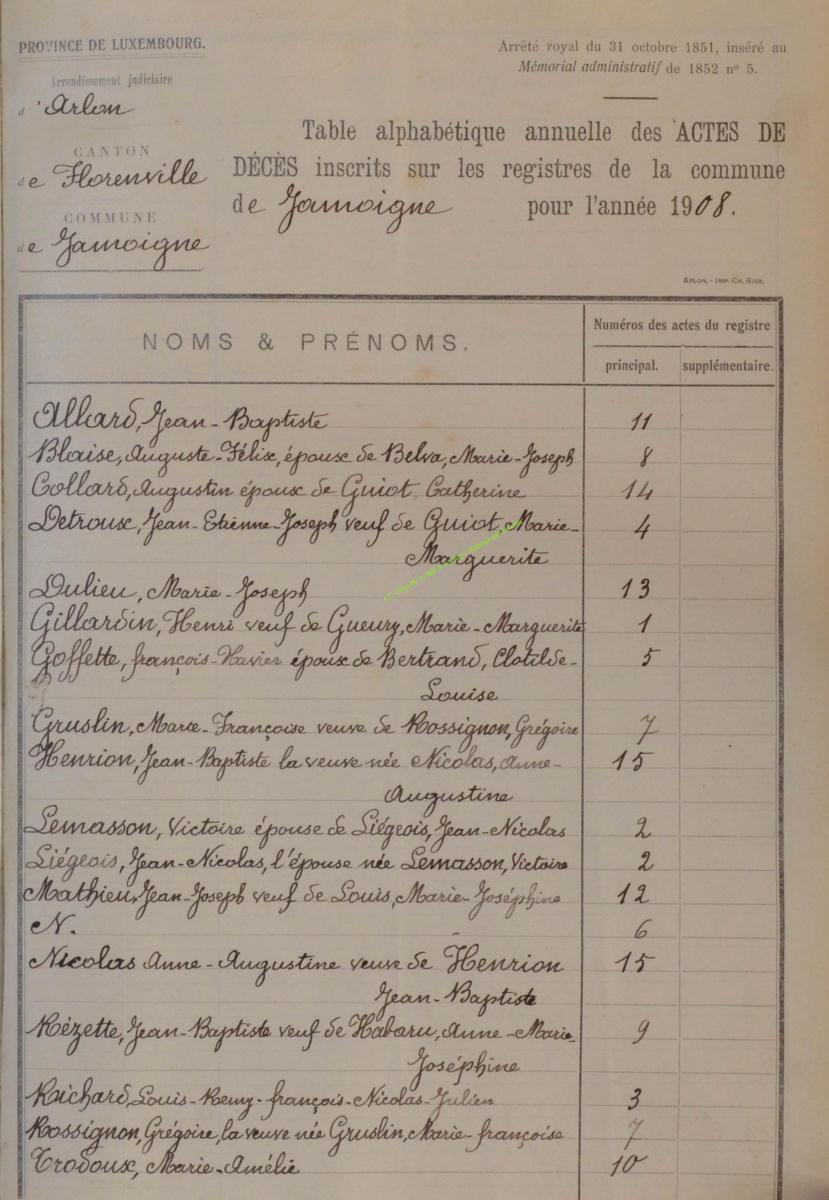 PROVINCE DE LUXEMBOURG.
Arrêté royal du 31 octobre 1851, inséré au
Mémorial administratif de 1852 nº 5.
Arrondissement judiciaire
d'Arlon
CANTON
de Florenville
COMMUNE
de Jamoigne
Table alphabétique annuelle des ACTES DE
DÉCÈS inscrits sur les registres de la commune
de Jamoigne pour l'année 1908.
ARLON. - IMP. CH.
NOMS & PRÉNOMS.
Numéros des actes du registre
principal. supplémentaire.
Allard, Jean-Baptiste 11
Blaise, Auguste-Félix, époux de Belva, Marie-Joseph 8
Collard, Augustin époux de Guiot, Catherine 14
Detroux, Jean-Etienne-Joseph veuf de Guiot, Marie- 4
Marguerite
Dulieu, Marie-Joseph 13
Gillardin, Henri veuf de Gueury, Marie-Marguerite 1
Goffette, françois-Xavier époux de Bertrand, Clotilde- 5
Louise
Gruslin, Marie-Françoise veuve de Rossignon, Grégoire 7
Henrion, Jean-Baptiste la veuve née Nicolas, Anne- 15
Augustine
Lemasson, Victoire épouse de Liégeois, Jean-Nicolas 2
Liégeois, Jean-Nicolas, l'épouse née Lemasson, Victoire 2
Mathieu, Jean-Joseph veuf de Louis, Marie-Joséphine 12
N. 6
Nicolas Anne-Augustine veuve de Henrion 15
Jean-Baptiste
Rézette, Jean-Baptiste veuf de Habaru, Anne-Marie 9
Joséphine
Richard, Louis-Remy-françois-Nicolas-Julien 3
Rossignon, Grégoire, la veuve née Gruslin, Marie-françoise 7
Trodoux, Marie-Amélie 10